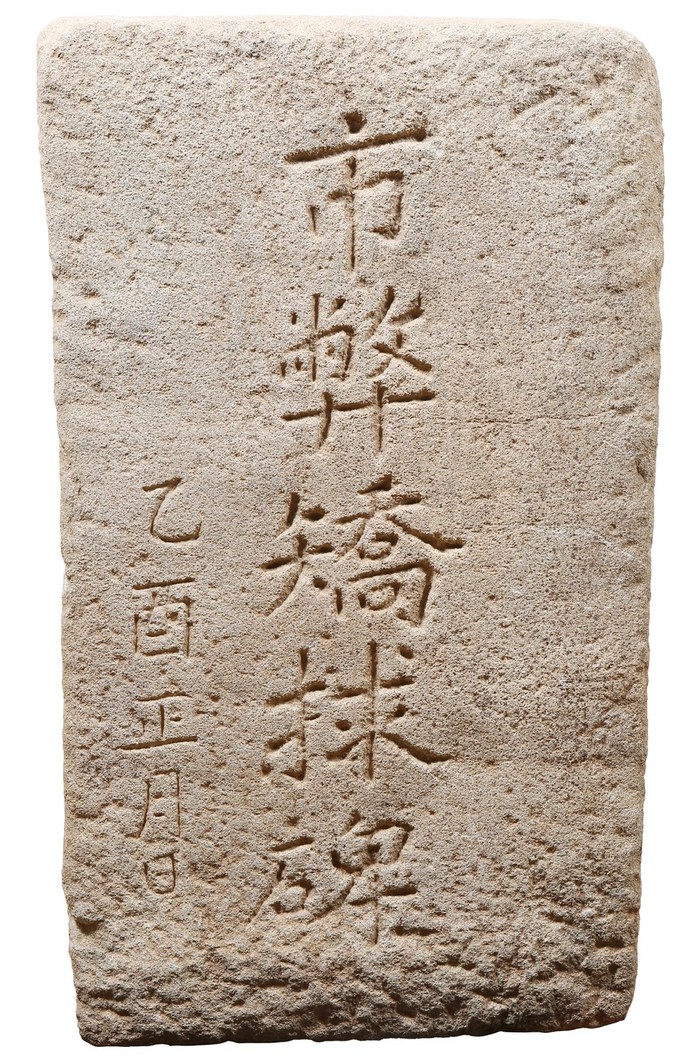 市弊矯捄碑
乙酉正月日